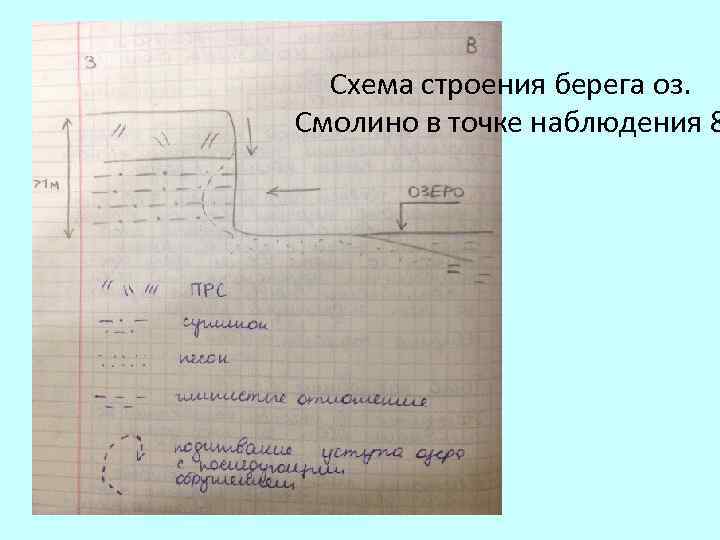 Схема строения берега оз.
Смолино в точке наблюдения 8
З
В
>1м
ОЗЕРО
ПРС
суглинок
песок
глинистые отложения
подмывание уступа озера
с последующим
обрушением